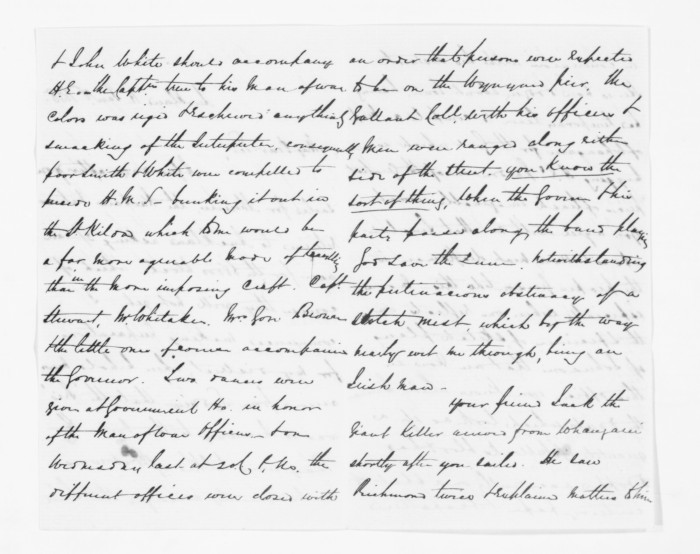 & John White should accompany
H.E. – the Captn true to his Man of war
Colors was rigid & Eschewed anything
smacking of the Interpreter, consequently
poor Smith & White were compelled to
precede H.M.S – bunking it out in
the St Kilda which to me would be
a far more agreeable mode of
than in the more imposing Craft. Captn
Stewart, Mr Whitaker, Mrs Gore Browne
& the little ones of course accompanies
the Governor. Two dances were
given at Government Ho. in honor
of the Man of War Officers – & on
Wednesday last at 2 o'C. P.M. the
different offices were closed with
an order that persons were expected
to be on the Wynyard pier. The
Gallant Coll. with his officers &
Men were ranged along either
side of the street – you know the
sort of thing, when the Govern & his
party passed along, the band playing
God Save the Queen. notwithstanding
the pertinacious obstinacy of a
Scotch mist, which by the way
nearly wet me through, being an
Irish man –
Your friend Jack the
Giant Killer arrived from Whanganui
shortly after you sailed. He saw
Richmond twice & explained matters to him